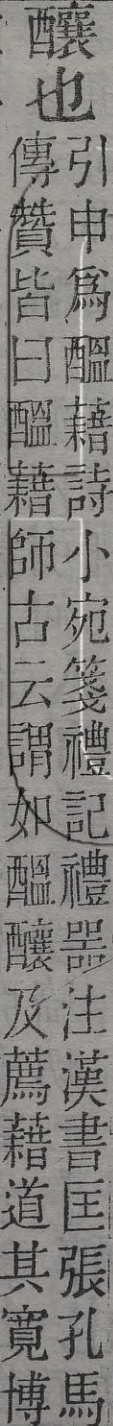 釀也
引申爲醞藉詩小宛箋禮記禮器注漢書匡張孔馬
傳贊皆曰醞藉師古云謂如醞釀及薦藉道其寬博